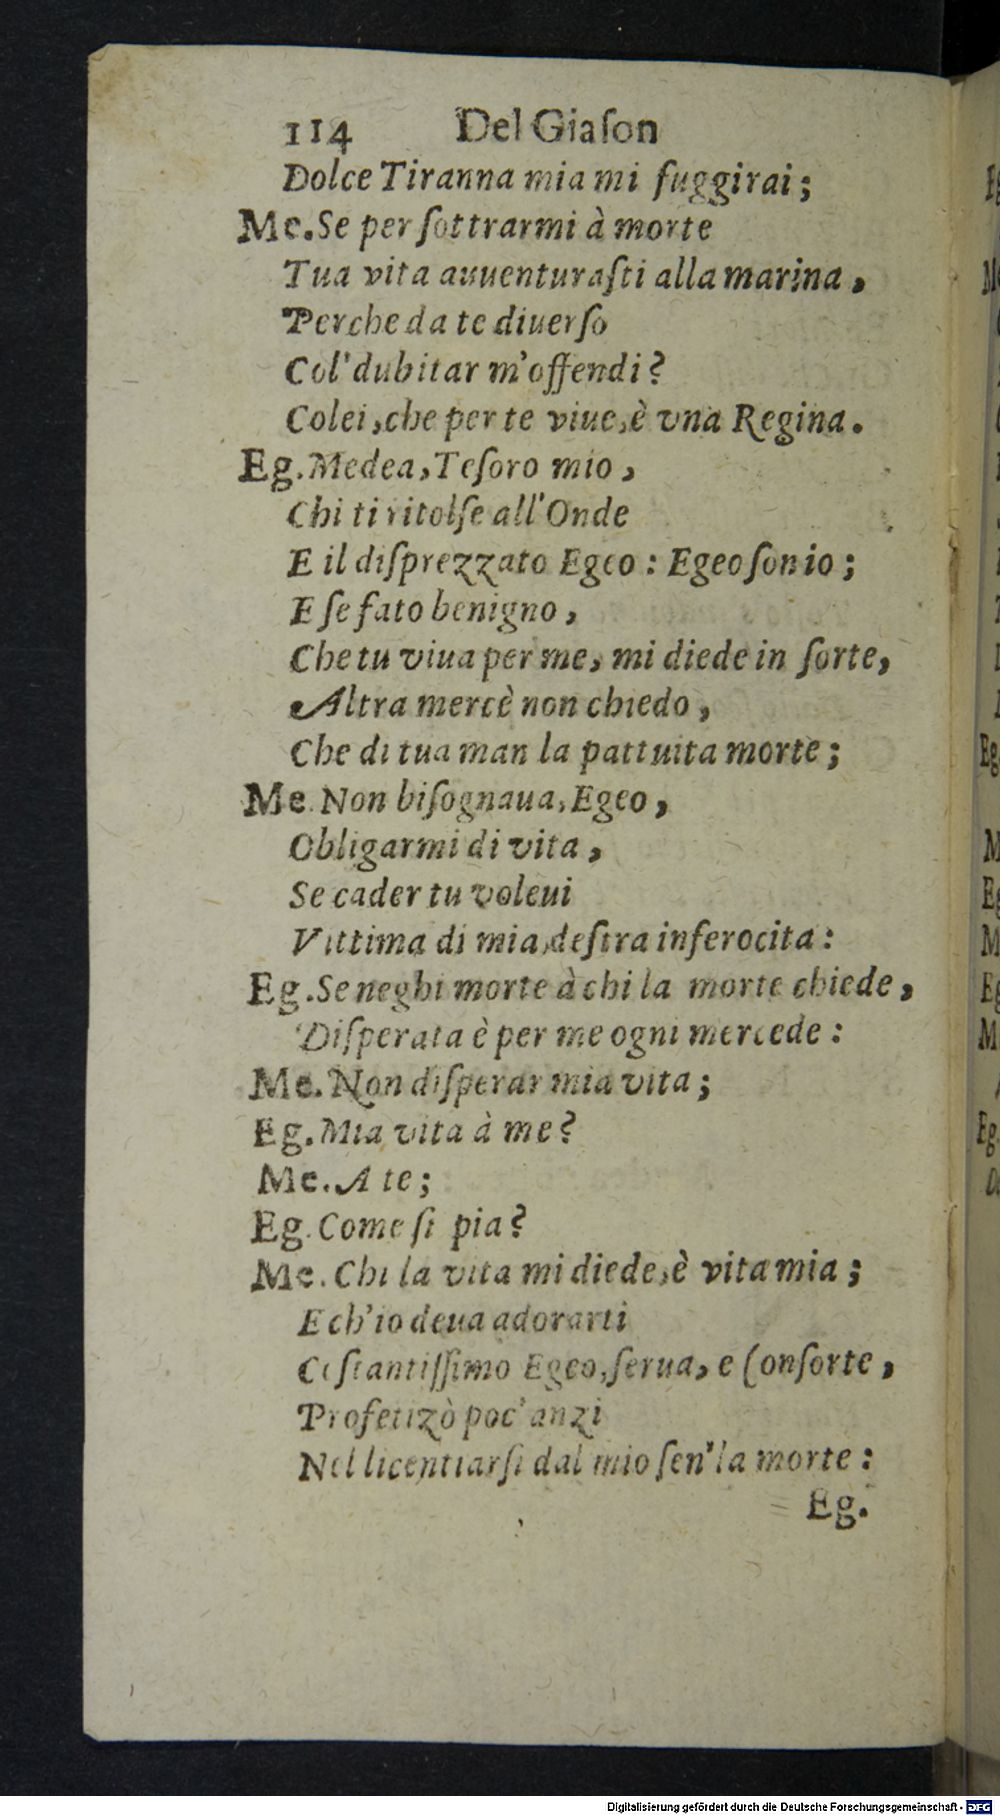 114 Del Giaſon
Dolce Tiranna mia mi fuggirai;
Me. Se per ſottrarmi à morte
Tua vita auuenturaſti alla marina,
Perche da te diuerſo
Col' dubitar m'offendi?
Colei, che per te viue, è vna Regina.
Eg. Medea, Teſoro mio,
Chi ti ritolſe all'Onde
E il diſprezzato Egeo: Egeo ſon io;
E ſe fato benigno,
Che tu viua per me, mi diede in ſorte,
Altra mercè non chiedo,
Che di tua man la pattuita morte;
Me. Non biſognaua, Egeo,
Obligarmi di vita,
Se cader tu voleui
Vittima di mia, deſtra inferocita:
Eg. Se neghi morte à chi la morte chiede,
Diſperata è per me ogni mercede:
Me. Non diſperar mia vita;
Eg. Mia vita à me?
Me. A te;
Eg. Come ſi pia?
Me. Chi la vita mi diede, è vita mia;
E ch'io deua adorarti
Coſtantiſſimo Egeo, ſerua, e Conſorte,
Profetizò poc' anzi
Nel licentiarſi dal mio ſen' la morte:
Eg.
Eg
Me
Eg
M
Eg
M
Eg
M
Eg.
Digitalisierung gefördert durch die Deutsche Forschungsgemeinschaft - DFG